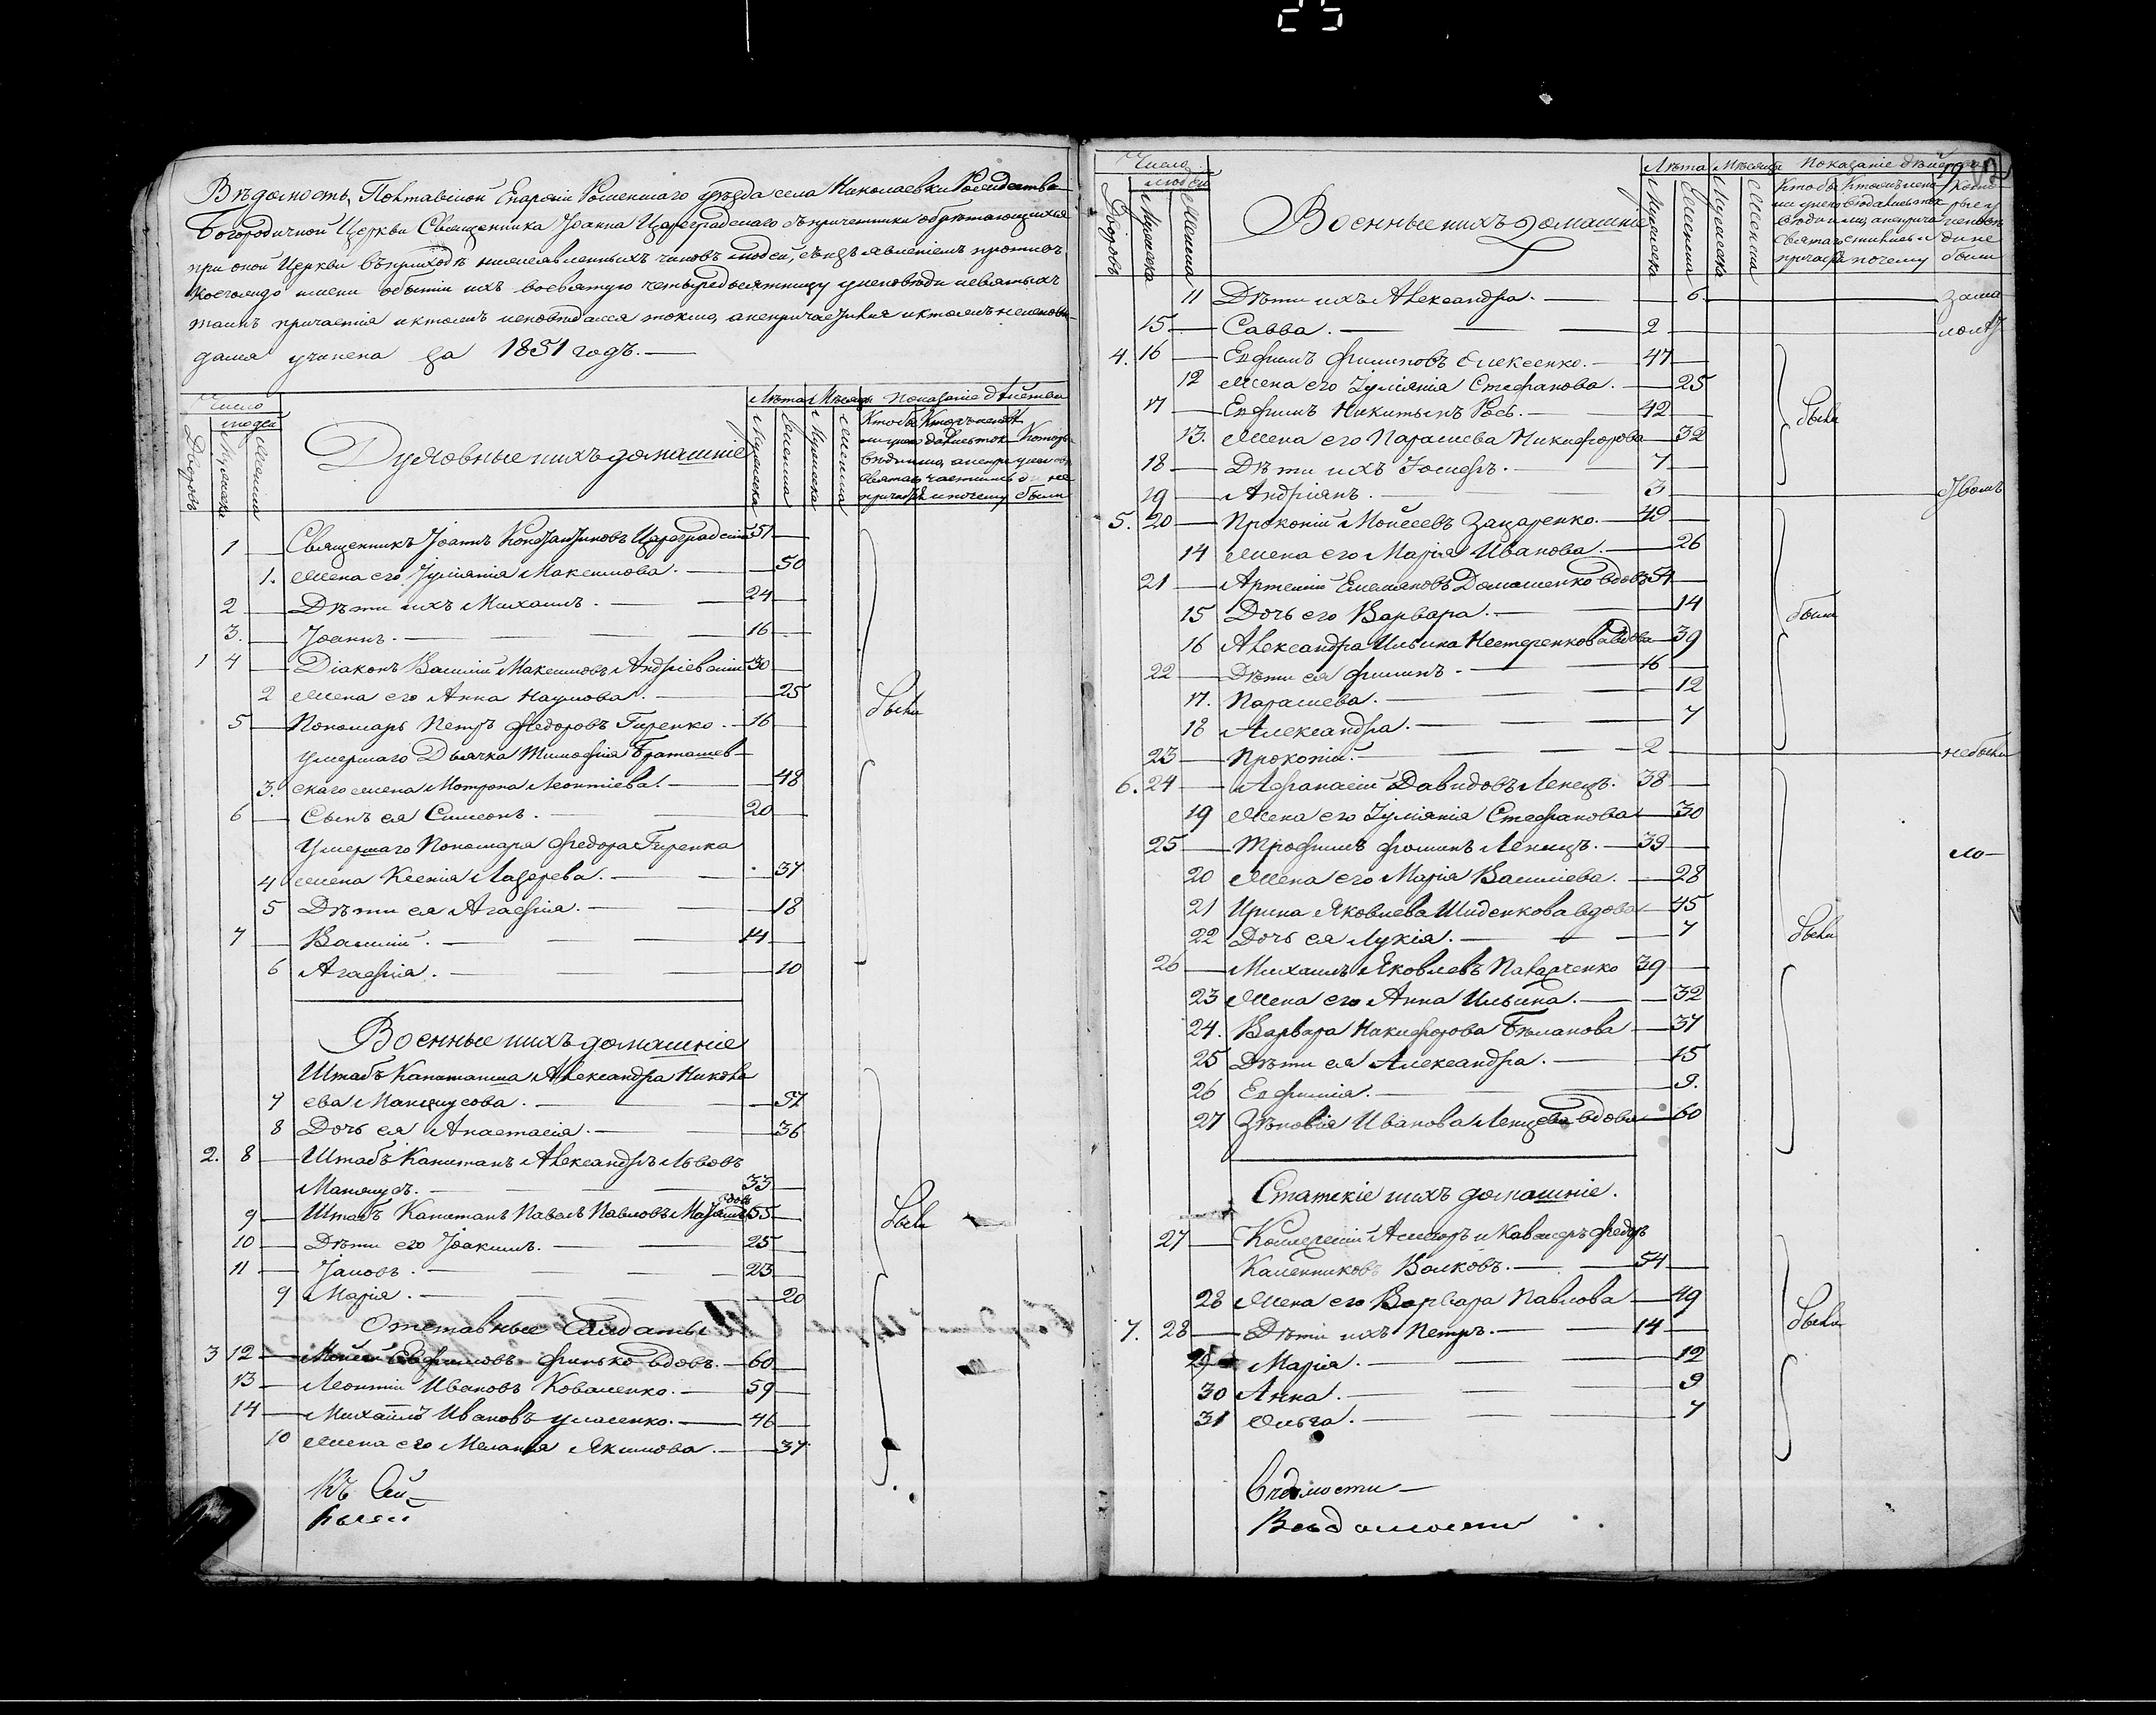 Вѣдомость, Полтавской Епархіи Роменскаго уѣзда села Николаевки Рождество-
Богородичной Церкви Священника Іоанна Цареградскаго съ причетники обрѣтающихся
при оной Церкви въ приходѣ нижеявленныхъ чиновъ людей, съ изъявленіемъ противъ
коегождо имени о бытіи ихъ во святую четыредесятницу у исповѣди и святыхъ
таинъ причастія и кто исповѣдался токмо, а не причастился и кто не исповѣ-
дался учинена за 1851 годъ.
Число Лѣта Мѣсяцы Показаніе дѣйства
людей
Дворовъ Мужеска Женска Духовные и ихъ домашніе Мужеска Женска Мужеска Женска
1 Священникъ Іоаннъ Константиновъ Цареградскій 51
1. Жена его Іуліанія Максимова. 50
2 Дѣти ихъ Михаилъ. 24
3. Іоаннъ. 16
1 4 Діаконъ Василій Максимовъ Андріевскій 30
2 Жена его Анна Наумова. 25
были
5 Пономарь Петръ Федоровъ Гиренко. 16
Умершаго Дьячка Тимофія Браташев-
3. скаго жена Мотрона Леонтіева. 48
6 Сынъ ея Симеонъ. 20
Умершаго Пономаря Федора Гиренка
4 жена Ксенія Лазарева. 37
5 Дѣти ея Агафія. 18
7 Василій. 14
6 Агафія. 10
Военные и ихъ домашніе
Штабъ Капитанша Александра Никола
7 ева Манжусова. 57
8 Дочь ея Анастасія. 36
2. 8 Штабъ Капитанъ Александръ Львовъ
Манжусъ. 33
9 Штабъ Капитанъ Павелъ Павловъ вдовъ 55
были
10 Дѣти его Іоакимъ. 25
11 Іаковъ. 23
9 Марія. 20
Отставные Салдаты
3 12 Мойсей Евфимовъ Финько вдовъ. 60
13 Леонтій Ивановъ Коваленко. 59
14 Михаилъ Ивановъ 46
10 Жена его Меланія Якимова. 37
Къ сей
Къ сей
Число Лѣта Мѣсяцы Показаніе дѣйства
людей
Дворовъ Мужеска Женска Военные и ихъ домашніе Мужеска Женска Мужеска Женска
11 Дѣти ихъ Александра. 6. за ма
15 Савва. 2 лолѣт
4. 16 Евфимъ Филиповъ Олексенко. 47
12 Жена его Іуліянія Стефанова. 25
17 Евфимъ Никитинъ Рось. 42
были
13. Жена его Параскева Никифорова 32
18 Дѣти ихъ Іосифъ. 7
19 Андріянъ. 3
5. 20 Прокопій Мойсеевъ Захаренко. 49
14 Жена его Марія Иванова. 26
21 Артемій Емельяновъ Домашенко вдовъ 54
15 Дочь его Варвара. 14
были
16 Александра Ильина Нестеренкова вдова 39
22 Дѣти ея Филипъ. 16
17. Параскева. 12
18 Александра. 7
23 Прокопій. 2 не были
6. 24 Афанасій Давидовъ Ленецъ. 38
19 Жена его Іуліянія Стефанова 30
25 Трофимъ Фоминъ Ленецъ. 39
20 Жена его Марія Василіева. 28
21 Ирина Яковлева Шиденкова вдова 45
22 Дочь ея Лукія. 7
были
26 Михаилъ Яковлевъ Панарченко 39
23 Жена его Анна Ильина. 32
24. Варвара Никифорова Бѣланова 37
25 Дѣти ея Александра. 15
26 Евфимія. 9.
27 Зѣновія Иванова Ленцева вдова 60
Статскіе и ихъ домашніе.
27 Коллежскій Асесоръ и Кавалеръ Федоръ
Волковъ. 54
28 Жена его Варвара Павлова 49
были
7. 28 Дѣти ихъ Петръ. 14
29 Марія. 12
30 Анна. 9
31 Ольга. 7
вѣдомости
Вѣдомости